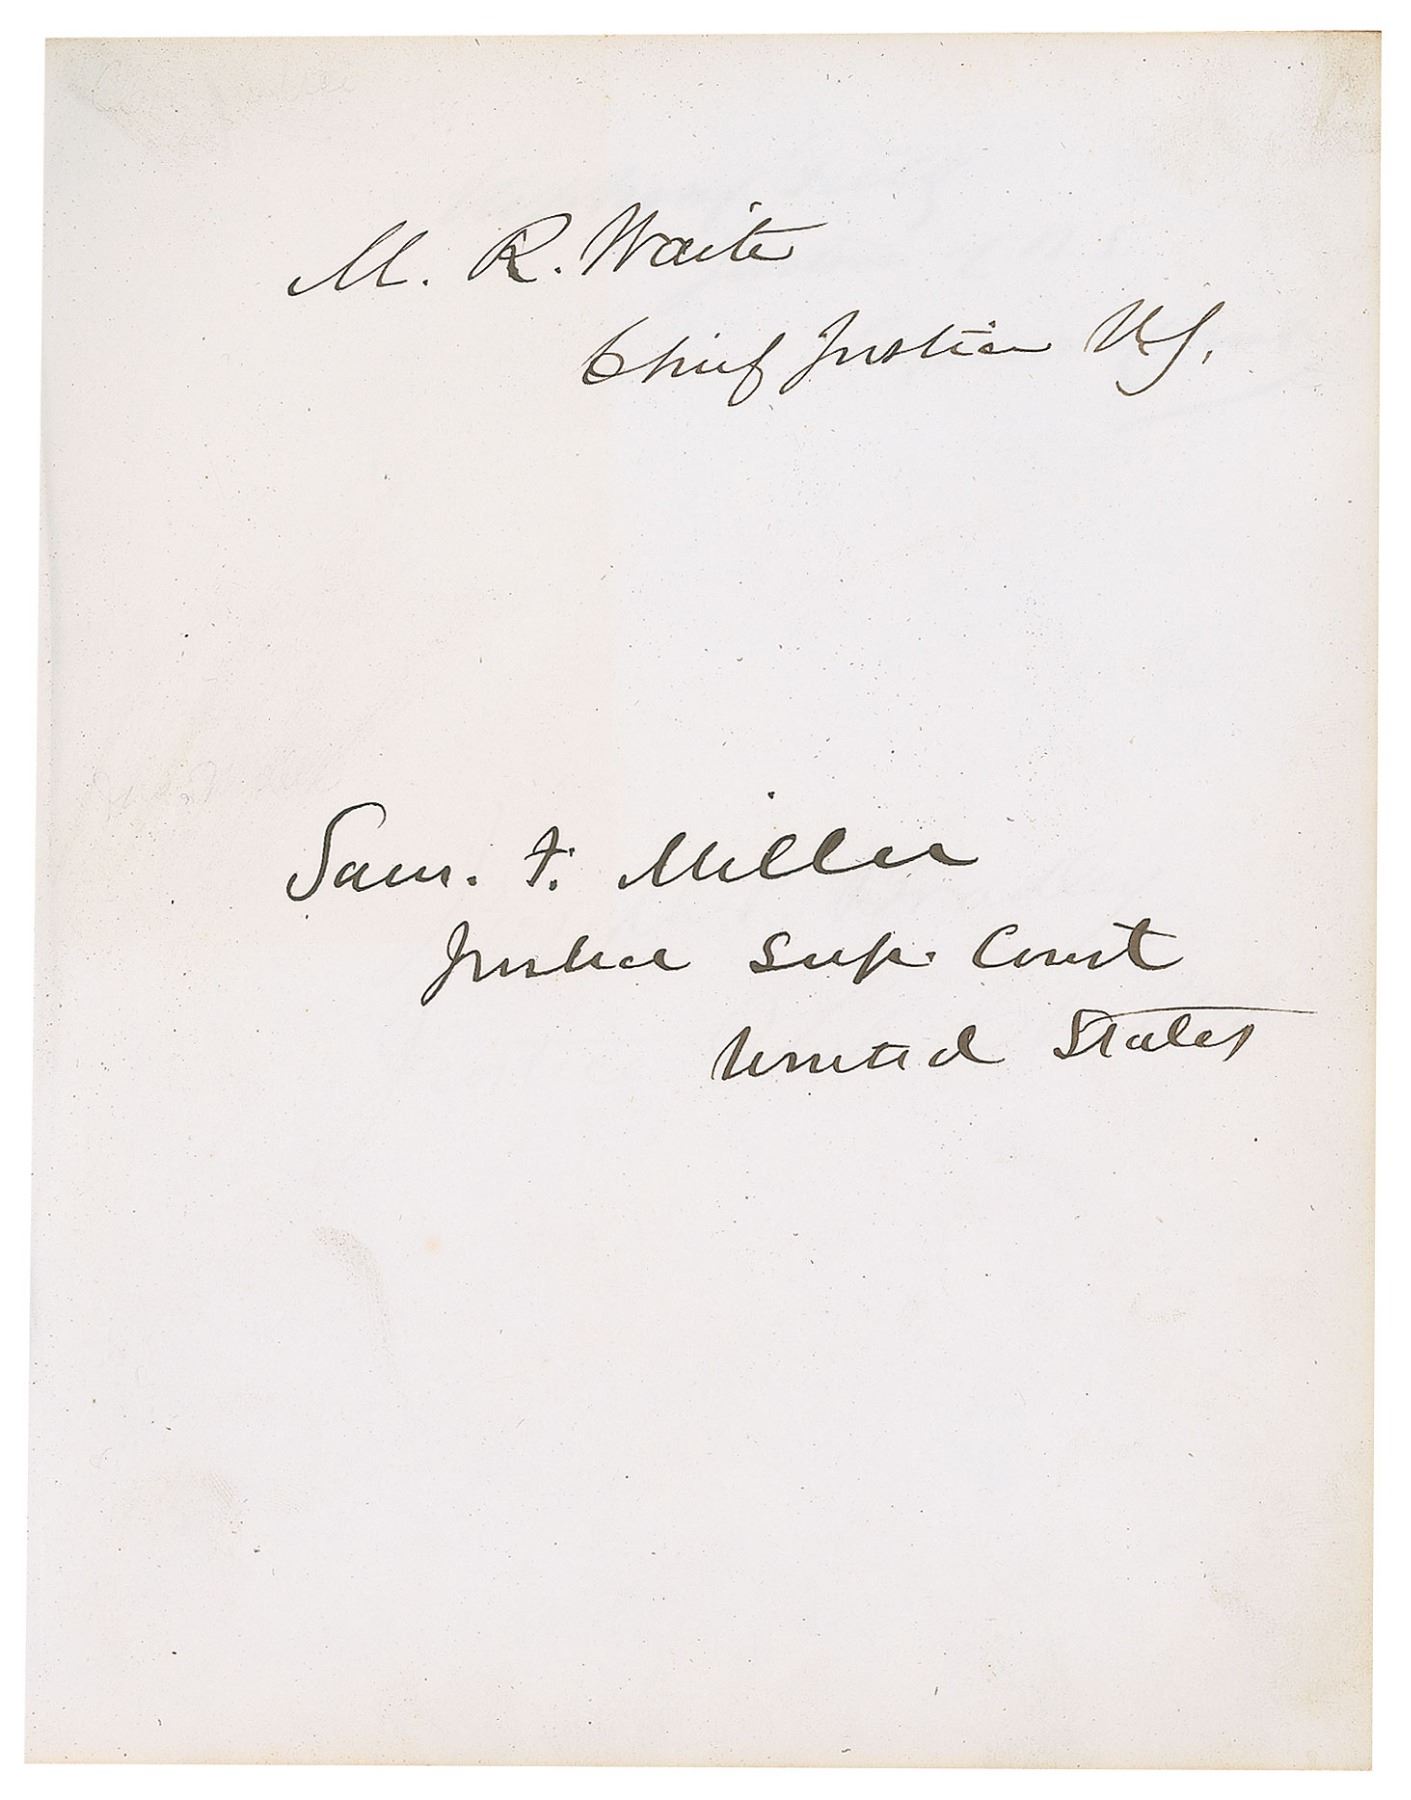 M. R. Waite
Chief Justice U.S.
Sam. F. Miller
Justice Sup. Court
United States